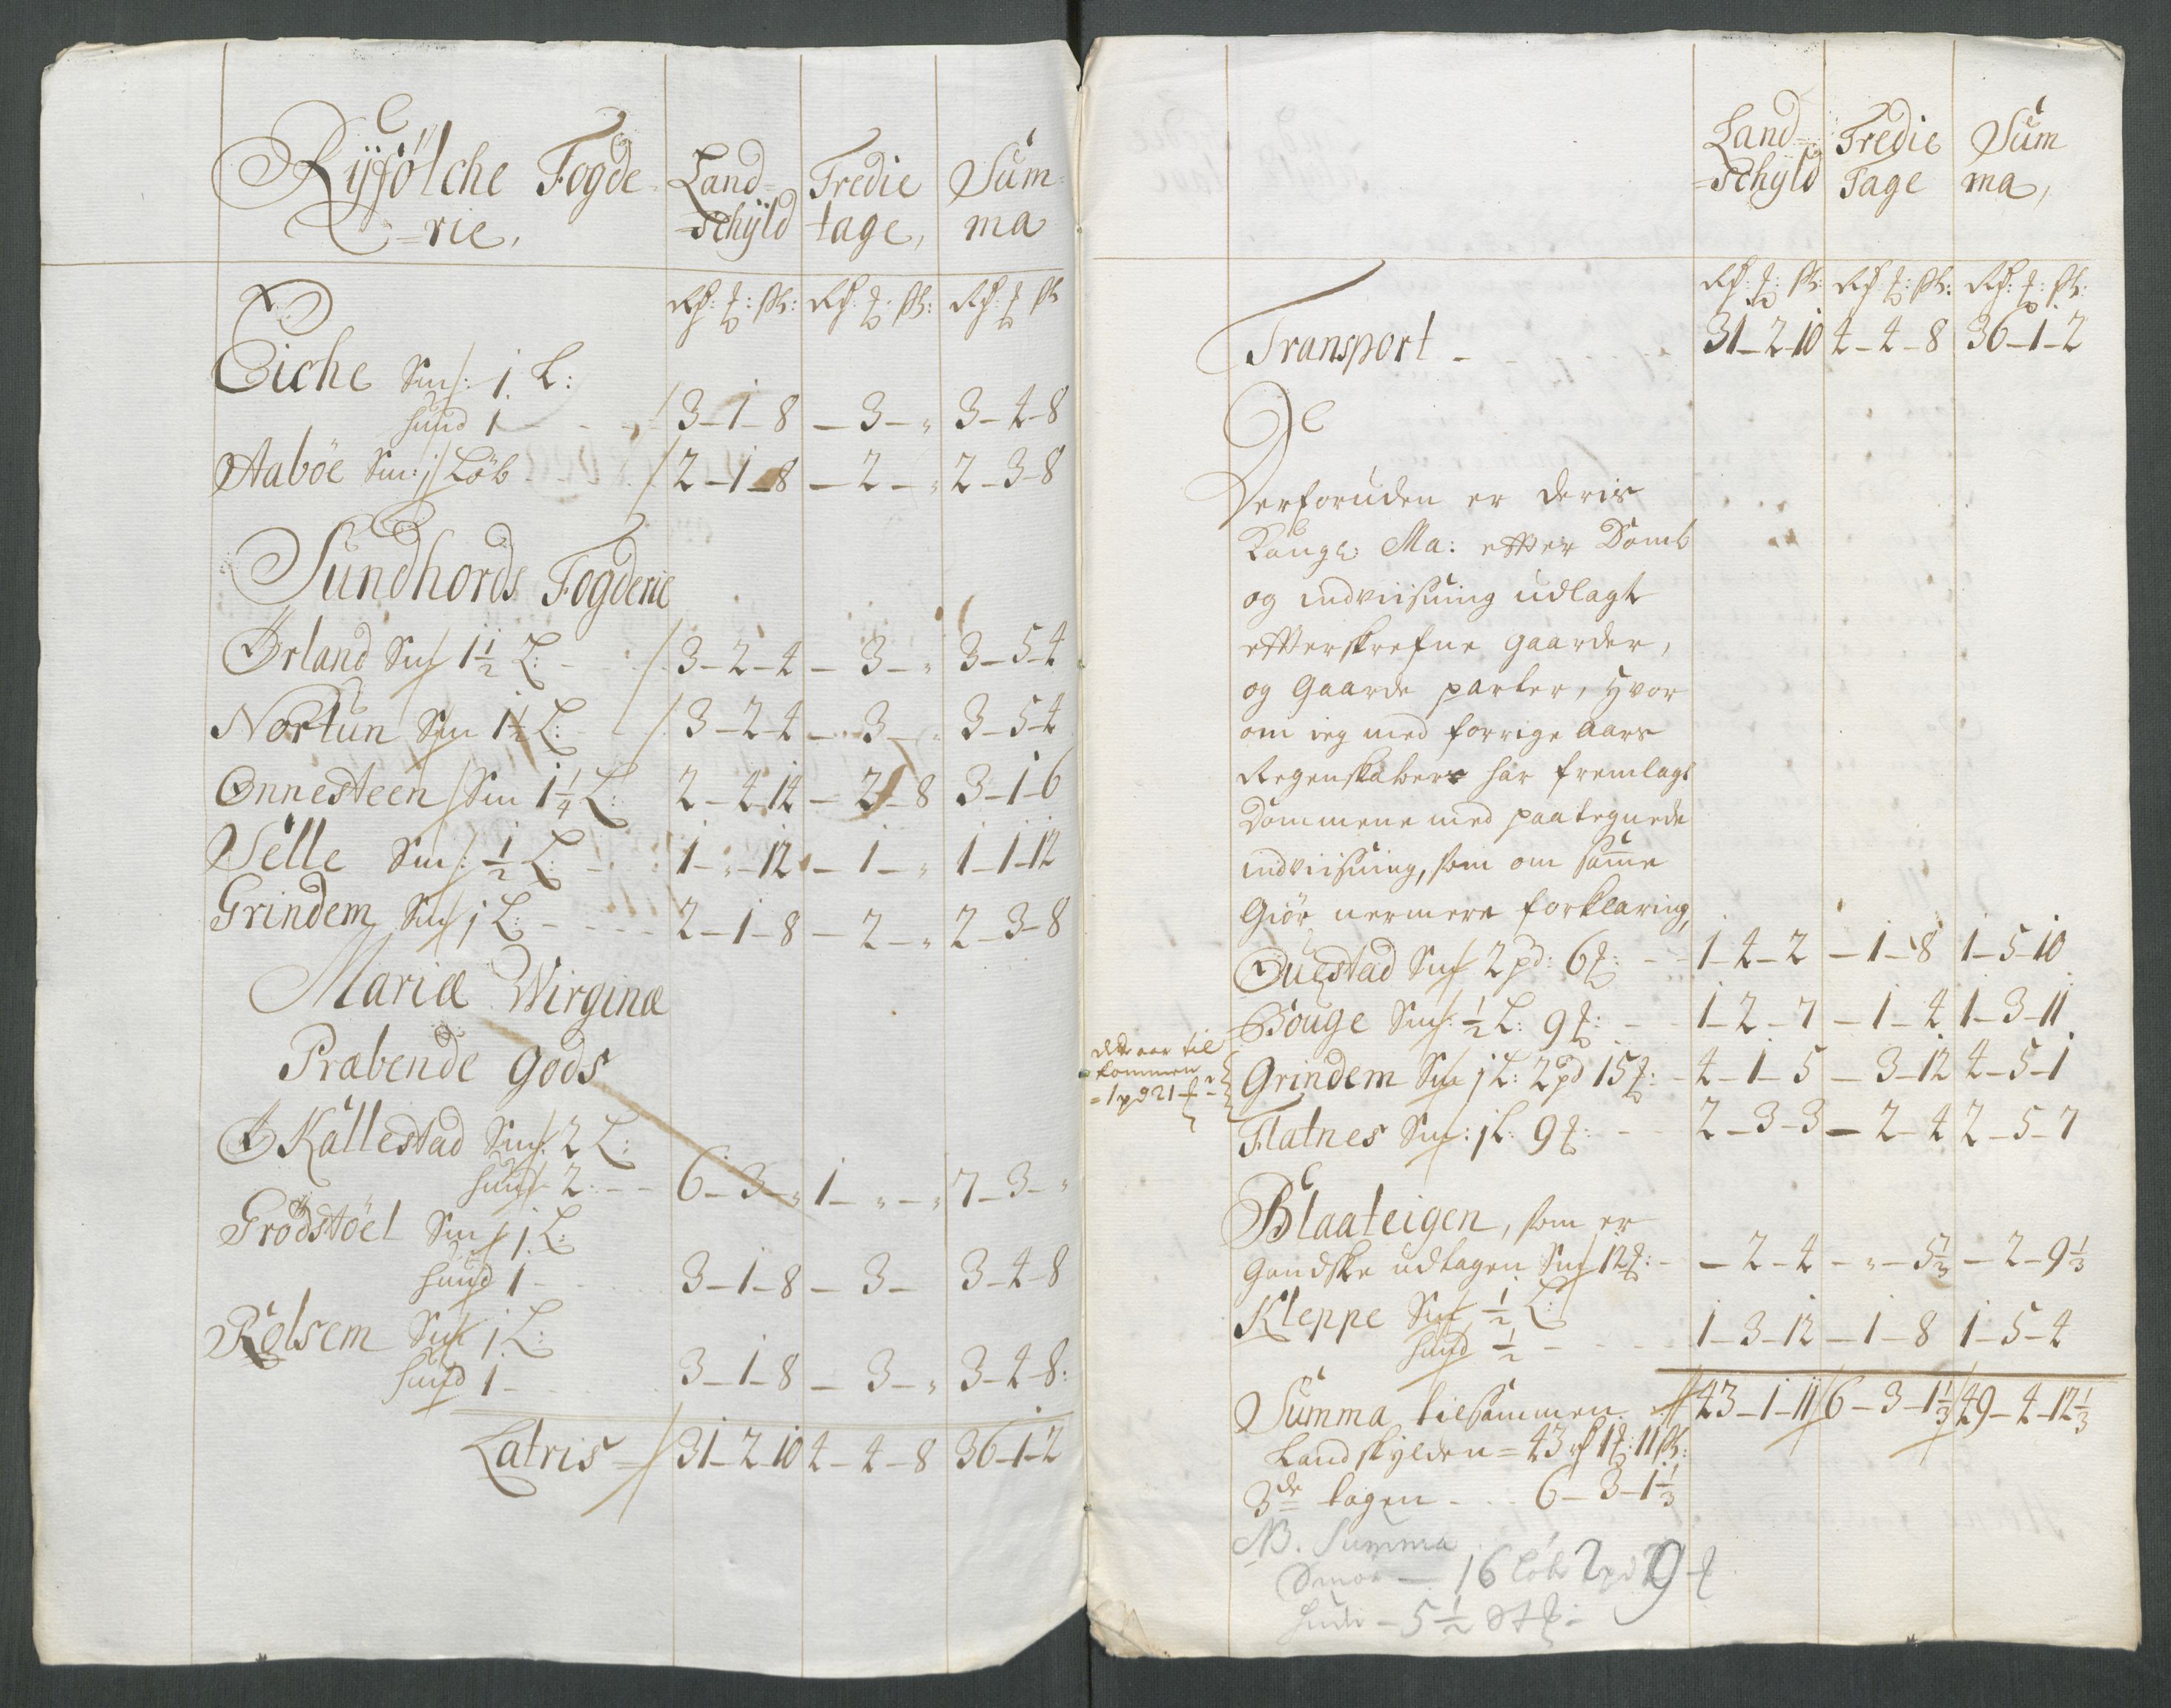 Ryfölche Fogde-
=rie,
Land=
=schÿld
Tredie
tage,
Sum=
ma
Rd: ƒ: ß: Rd: ƒ: ß: Rd: ƒ ß
Eiche Sm: 1 L:
hud 1 - - - 3-1-8 -3-" 3-4-8
Aaböe Sm: j Löb - - 2-1-8 -2-" 2-3-8
Sundhords Fogderie
Ørland Sm 1½ L: - - 3-2-4 -3-" 3-5-4
Nortun Sm 1½ L: - 3-2-4 -3-" 3-5-4
Onnesteen Sm 1¼ L: 2-4-14 -2-8 3-1-6
Velle Sm: ½ L: - - 1-"-12 -1-" 1-1-12
Grindem Sm j L: - - - - 2-1-8 -2-" 2-3-8
Mariæ Wirginæ
Præbende gods
Kallestad Sm: 2 L:
hud 2 - - 6-3-" 1-"-" 7-3-"
Grødstöel Sm j L:
hud 1 - - 3-1-8 -3- 3-4-8
Rolsem Sm j L:
hud 1 - - 3-1-8 -3-" 3-4-8:
Latris = 31-2-10 4-4-8 36-1-2
Land=
=schyld
Tredie
Tage
Sum
ma,
Rd: ƒ: ß: Rd ƒ: ß: Rd: ƒ: ß:
Transport - - 31-2-10 4-4-8 36-1-2
Derforuden er deris
Kongl: Ma: efter Domb
og indviisning udlagt
efterskrefne gaarder,
og Gaarde parter, hvor
om ieg med forrige Aars
Regenskaber har fremlagt
Dommene med paategnede
indviisning, som om samme
Giör nermere forklaring,
Questad Sm 2 pd: 6ƒ: - - 1-4-2 -1-8 1-5-10
Houge Sm: ½ L: 9ƒ: - - 1-2-7 -1-4 1-3-11
dette aar til
kommen
=1pd 21 ƒ
Grindem Sm j L: 2pd 15ƒ: - 4-1-5 -3-12 4-5-1
Flatnes Sm: j L: 9ƒ: - - 2-3-3 -2-4 2-5-7
Blaateigen, som er
Gandske udtagen Sm 12ƒ: - -2-4 -"-5⅓ -2-9⅓
Kleppe Sm ½ L:
hud ½ - - - - 1-3-12 -1-8 1-5-4
Summa tilsammen 43-1-11 6-3-1⅓ 49-4-12⅓
Landskylden = 43 rd 1ƒ: 11ß:
3de tagen - - 6-3-1⅓
NB. Summa
Smör — 16 Löb 2pd 9 ƒ
huder - 5½